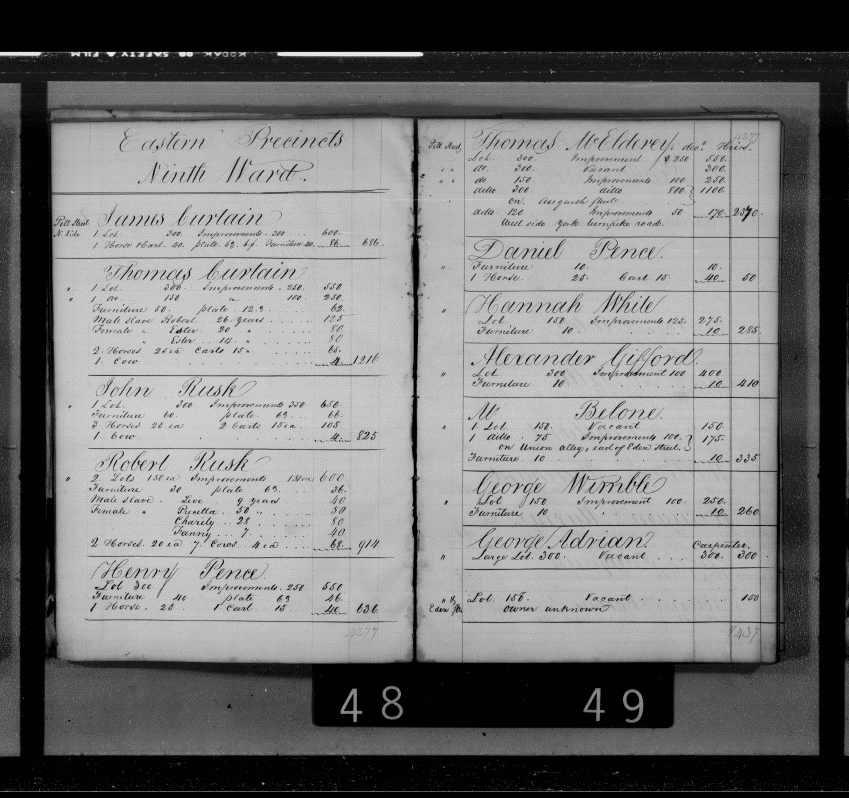 KODAK SAFETY FILM
Eastern Precincts
Ninth Ward.
James Curtain
Pitt Street
N. Side 1 Lot. 300. Improvements. 300 600.
1 Horse 1 Cart. 40. plate 69. 6f. Furniture 40. 86 686.
Thomas Curtain
" 1 Lot. 300. Improvements. 250. 550
" 1 do. 150 " 100. 250.
Furniture 50. plate 12.9 62.
Male slave Robert. 26. years 125
Female " Ester. 20 " 80
" Ester. 14. " 80
2. Horses 25 ea Carts 15 " 65.
1. Cow 4 1216
John Rusk
" 1 Lot. 300 Improvements 350 650.
Furniture 60. plate. 69. 66.
3 Horses 25 ea 2 Carts 15 ea. 105
1. Cow 4 825
Robert Rusk
" 2. Lots 150 ea Improvements 150 ea 600
Furniture 30 plate 69. 36.
Male slave. 9 years 40
Female " 30 " 50
Charity .. 28 80
Fanny .. 7 40
2 Horses. 20 ea 7 Cows. 4 ea 68 914
Henry Pence
Lot 300 Improvements. 250 550
Furniture 40 plate 69 46.
1 Horse. 25. 1 Cart 15. 40 636
4277
4277
Pitt Street Thomas McElderey decd. Heirs.
Lot. 300. Improvement $ 250 550.
" " do. 300. Vacant 300.
" " do 150 Improvements 100. 250.
ditto 300 ditto 800 } 1100.
on Street
ditto 120 Improvements 50 170 2370.
West side York turnpike road.
Daniel Pence.
" Furniture 10. 10.
1 Horse. 25. Cart 15 40 50
Hannah White
" Lot. 150 Improvements 125. 275.
Furniture 10 10 285.
Alexander Gifford.
" Lot 300 Improvement 100 400
Furniture 10 10 410
Mr. Belone.
" 1. Lot. 150. Vacant 150.
1 ditto. 75 Improvements 100. } 175.
on Union alley, east of Eden Street.
Furniture. 10 10 335
George Wimble
" Lot 150. Improvement 100 250.
Furniture 10 10 260.
George Adrian. Carpenter.
" Large Lot. 300. Vacant 300. 300
" & Lot. 150. Vacant 150
Eden Sts. owner unknown
8437
48 49